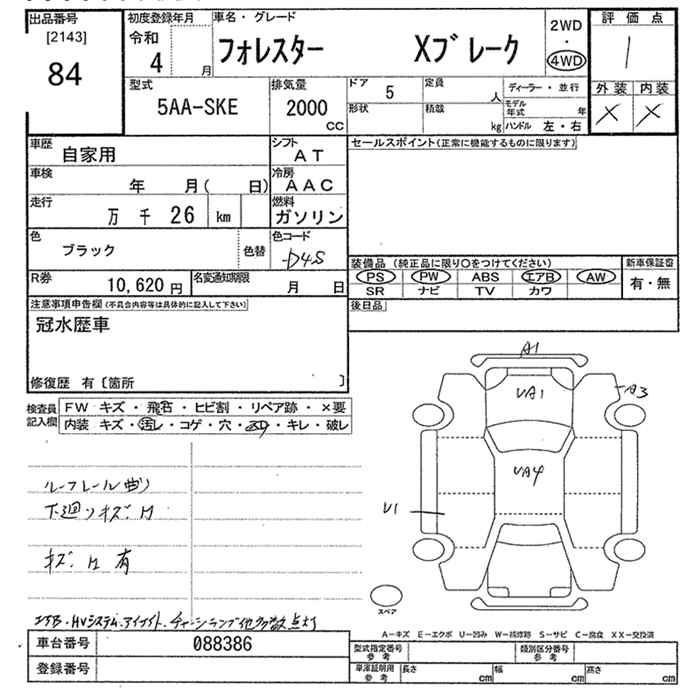 出品番号
[2143]
84
初度登録年月
令和
4 月
車名・グレード
フォレスター Xブレーク
2WD
・
4WD
評価点
1
外装 内装
× ×
型式
5AA-SKE
排気量
2000
CC
ドア 5
形状
定員
人
積載
kg
ディーラー・並行
モデル年式 年
ハンドル 左・右
車歴
自家用
シフト
AT
車検
年 月( 日)
冷房
AAC
走行
万 千 26 km
燃料
ガソリン
色
ブラック
色替
色コード
D4S
R券
10,620 円
名変通知期限
月 日
セールスポイント(正常に機能するものに限ります)
装備品 (純正品に限り○をつけてください)
PS PW ABS エアB AW
SR ナビ TV カワ
新車保証書
有・無
後日品
注意事項申告欄(不具合内容等は具体的に記入して下さい)
冠水歴車
修復歴 有〔箇所 〕
検査員
記入欄
FW キズ・飛石・ヒビ割・リペア跡・×要
内装 キズ・汚レ・コゲ・穴・スレ・キレ・破レ
ルーフレール曲り
下廻りキズ.H
キズ.H 有
エアB・HVシステム・アイサイト・チャージランプ他多数点灯
A1
UA1
A3
UA4
U1
スペア
A-キズ E-エクボ U-凹み W-補修跡 S-サビ C-腐食 XX-交換済
車台番号 088386
登録番号
型式指定番号
参考
類別区分番号
参考
車庫証明用
参考
長さ cm 幅 cm 高さ cm